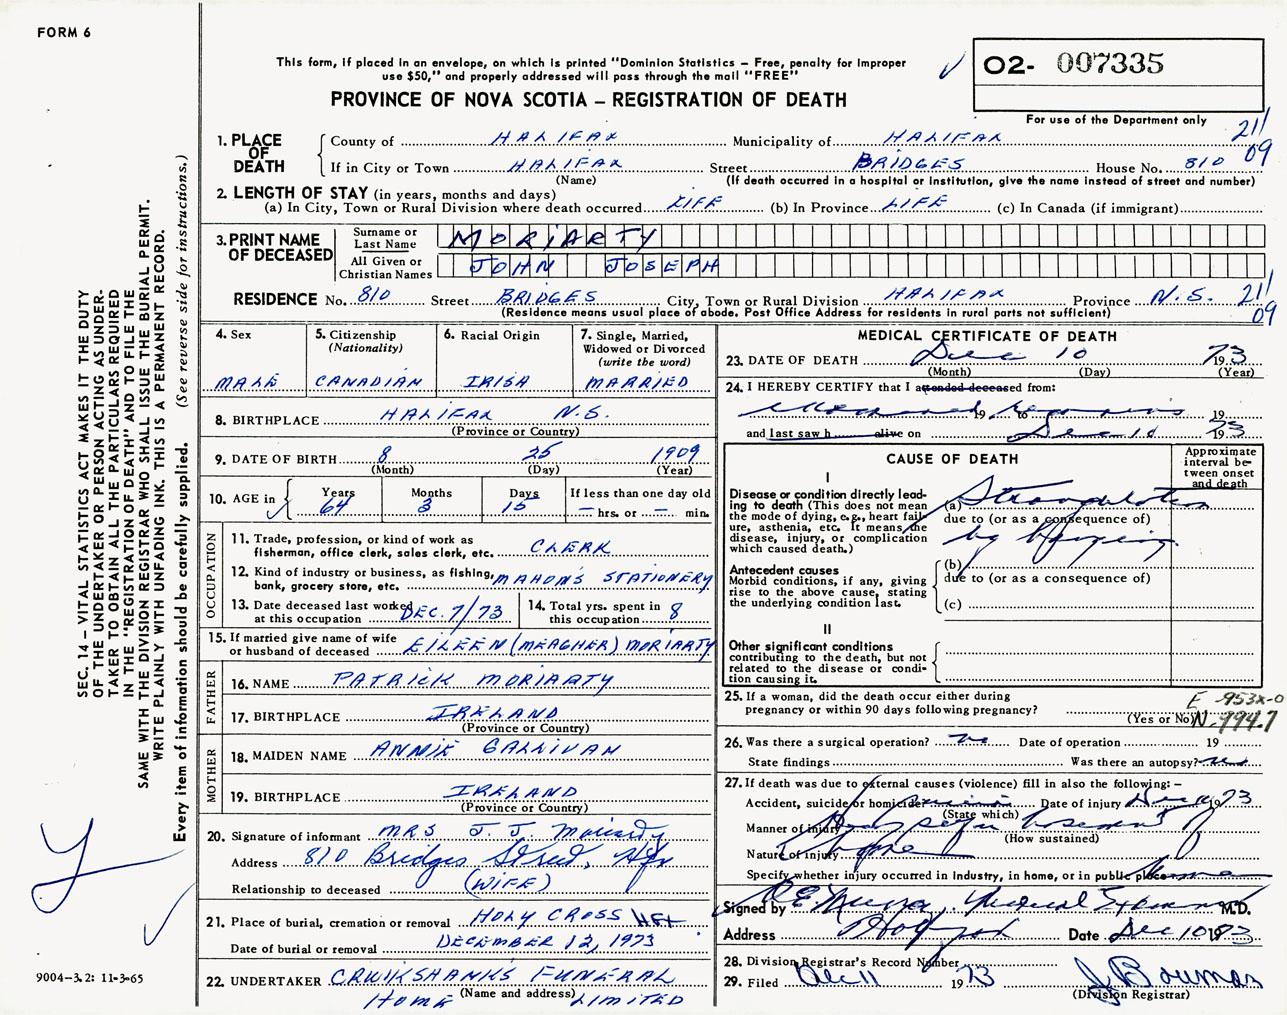 FORM 6
This form, if placed in an envelope, on which is printed "Dominion Statistics – Free, penalty for improper
use $50," and properly addressed will pass through the mail "FREE"
O2- 007335
PROVINCE OF NOVA SCOTIA – REGISTRATION OF DEATH
For use of the Department only
211
09
1. PLACE OF DEATH
County of HALIFAX Municipality of HALIFAX
If in City or Town HALIFAX Street BRIDGES House No. 810
(Name) (If death occurred in a hospital or institution, give the name instead of street and number)
2. LENGTH OF STAY (in years, months and days)
(a) In City, Town or Rural Division where death occurred LIFE (b) In Province LIFE (c) In Canada (if immigrant)
3. PRINT NAME OF DECEASED
Surname or Last Name MORIARTY
All Given or Christian Names JOHN JOSEPH
RESIDENCE No. 810 Street BRIDGES City, Town or Rural Division HALIFAX Province N.S. 211
09
(Residence means usual place of abode. Post Office Address for residents in rural parts not sufficient)
4. Sex
MALE
5. Citizenship
(Nationality)
CANADIAN
6. Racial Origin
IRISH
7. Single, Married,
Widowed or Divorced
(write the word)
MARRIED
8. BIRTHPLACE HALIFAX N.S.
(Province or Country)
9. DATE OF BIRTH 8 25 1909
(Month) (Day) (Year)
10. AGE in Years 64 Months 3 Days 15 If less than one day old
– hrs. or – min.
OCCUPATION
11. Trade, profession, or kind of work as
fisherman, office clerk, sales clerk, etc. CLERK
12. Kind of industry or business, as fishing,
bank, grocery store, etc. MAHON'S STATIONERY
13. Date deceased last worked
at this occupation DEC. 7/73
14. Total yrs. spent in
this occupation 8
15. If married give name of wife
or husband of deceased EILEEN (MEAGHER) MORIARTY
FATHER
16. NAME PATRICK MORIARTY
17. BIRTHPLACE IRELAND
(Province or Country)
MOTHER
18. MAIDEN NAME ANNIE GALLIVAN
19. BIRTHPLACE IRELAND
(Province or Country)
20. Signature of informant MRS J. J. Moriarty
Address 810 Bridges Street, Hfx
Relationship to deceased (WIFE)
21. Place of burial, cremation or removal HOLY CROSS HFX
Date of burial or removal DECEMBER 12, 1973
22. UNDERTAKER CRUIKSHANKS FUNERAL
(Name and address)
HOME LIMITED
MEDICAL CERTIFICATE OF DEATH
23. DATE OF DEATH Dec 10 1973
(Month) (Day) (Year)
24. I HEREBY CERTIFY that I attended deceased from:
19 to 19
and last saw h alive on Dec 10 1973
CAUSE OF DEATH
Approximate
interval be-
tween onset
and death
I
Disease or condition directly lead-
ing to death (This does not mean
the mode of dying, e.g., heart fail-
ure, asthenia, etc. It means the
disease, injury, or complication
which caused death.)
(a) Strangulation
due to (or as a consequence of)
by hanging
Antecedent causes
Morbid conditions, if any, giving
rise to the above cause, stating
the underlying condition last.
(b)
due to (or as a consequence of)
(c)
II
Other significant conditions
contributing to the death, but not
related to the disease or condi-
tion causing it.
25. If a woman, did the death occur either during
pregnancy or within 90 days following pregnancy?
(Yes or No)
E 953X-0
N-994.7
26. Was there a surgical operation? no Date of operation 19
State findings Was there an autopsy?
27. If death was due to external causes (violence) fill in also the following: –
Accident, suicide or homicide Date of injury Dec 10 1973
(State which)
Manner of injury
(How sustained)
Nature of injury
Specify whether injury occurred in Industry, in home, or in public place home
Signed by Medical Examiner M.D.
Address Halifax Date Dec 10 1973
28. Division Registrar's Record Number
29. Filed Dec 11 1973
(Division Registrar)
SEC. 14 – VITAL STATISTICS ACT MAKES IT THE DUTY
OF THE UNDERTAKER OR PERSON ACTING AS UNDER-
TAKER TO OBTAIN ALL THE PARTICULARS REQUIRED
IN THE "REGISTRATION OF DEATH" AND TO FILE THE
SAME WITH THE DIVISION REGISTRAR WHO SHALL ISSUE THE BURIAL PERMIT.
WRITE PLAINLY WITH UNFADING INK. THIS IS A PERMANENT RECORD.
Every item of information should be carefully supplied. (See reverse side for instructions.)
9004-3.2: 11-3-65